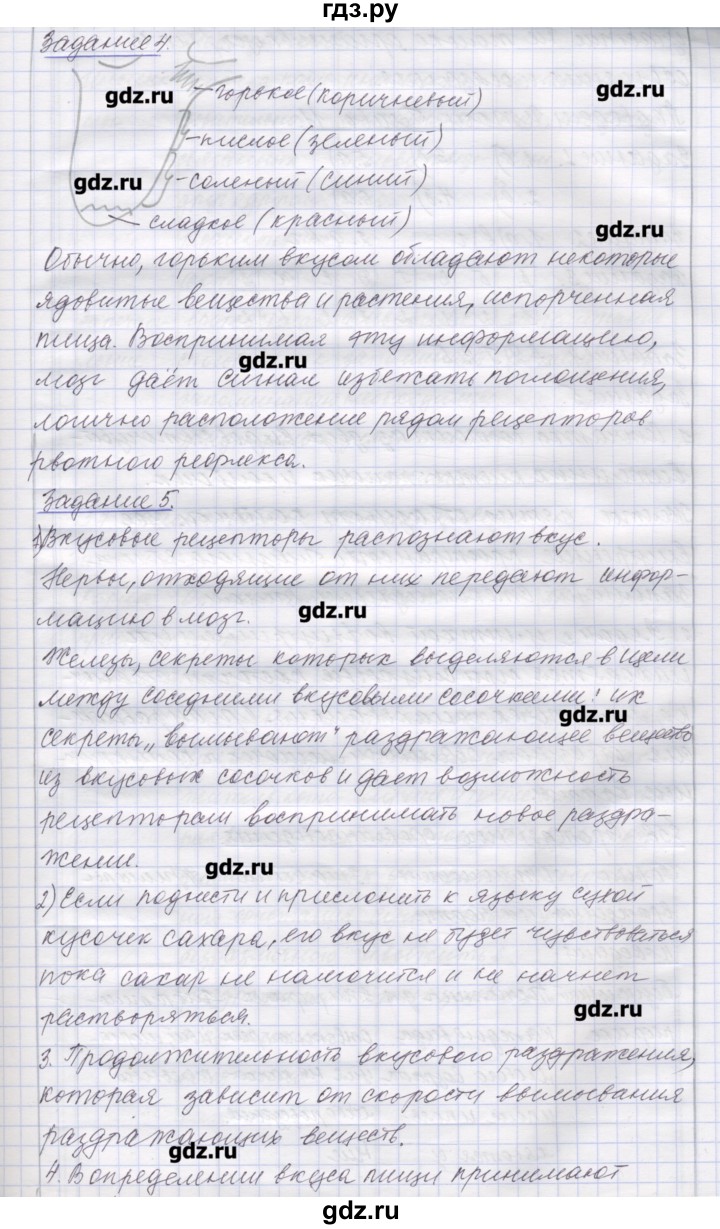 гдз.ру
Задание 4.
gdz.ru
горькое (коричневый)
gdz.ru
кислое (зеленый)
gdz.ru
соленый (синий)
сладкое (красный)
gdz.ru
Обычно, горьким вкусом обладают некоторые
ядовитые вещества и растения, испорченная
пища. Воспринимая эту информацию,
gdz.ru
мозг даёт сигнал избежать поглощения,
логично расположение рядом рецепторов
рвотного рефлекса.
Задание 5.
1) Вкусовые рецепторы распознают вкус.
Нервы, отходящие от них передают инфор-
gdz.ru
мацию в мозг.
Железы, секреты которых выделяются в щели
между соседними вкусовыми сосочками! их
gdz.ru
секреты „вымывают" раздражающее вещество
из вкусовых сосочков и дает возможность
рецепторам воспринимать новое раздра-
жение.
gdz.ru
2) Если поднести и прислонить к языку сухой
кусочек сахара, его вкус не будет чувствоваться
пока сахар не намочится и не начнет
растворяться.
gdz.ru
3. Продолжительность вкусового раздражения,
которая зависит от скорости вымывания
раздражающих веществ.
gdz.ru
4. В определении вкуса пищи принимают
гдз.ру